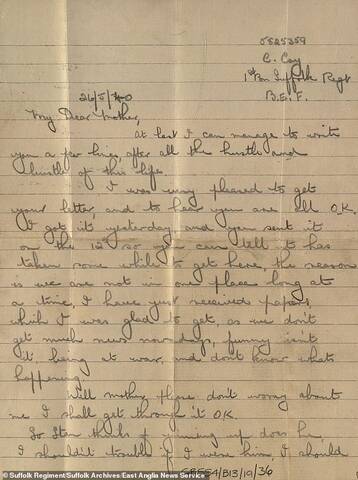 5825259
C. Coy
1st Bn Suffolk Regt
B.E.F.
26/5/40
My Dear Mother,
at last I can manage to write
you a few lines, after all the hustle and
bustle of this life.
I was very pleased to get
your letter, and to hear you are all O.K.
I got it yesterday, and you sent it
on the 12th so you can tell it has
taken some while to get here, the reason
is we are not in one place long at
a time, I have just received papers,
which I was glad to get, as we don't
get much news nowdays, funny isn't
it being at war, and don't know whats
happening.
Well mother please don't worry about
me I shall get through it O.K.
So Stan thinks of joining up does he,
I shouldn't trouble if I were him, I should
554/B13/19/36
© Suffolk Regiment/Suffolk Archives/East Anglia News Service